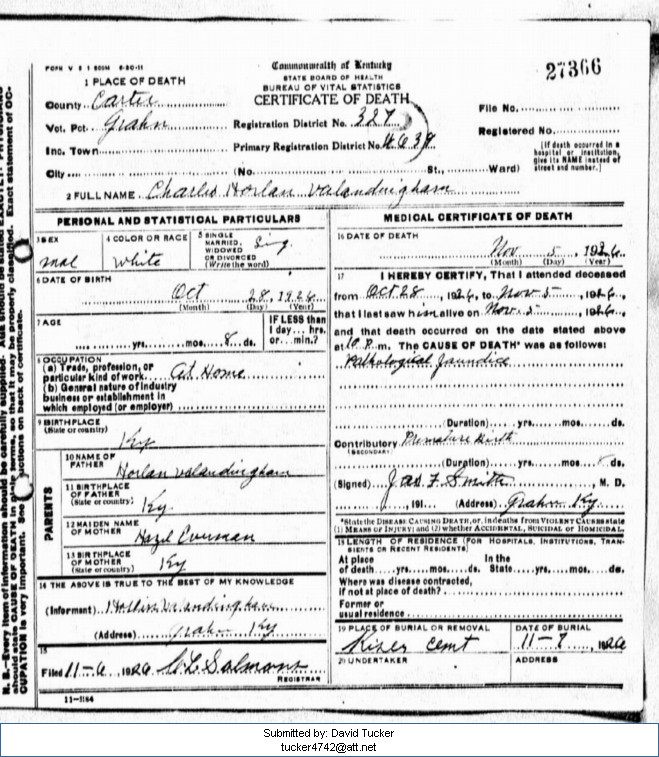 FORM V S 1 500M 8-20-11
Commonwealth of Kentucky
STATE BOARD OF HEALTH
BUREAU OF VITAL STATISTICS
CERTIFICATE OF DEATH
27366
1 PLACE OF DEATH
County Carter
Vot. Pct. Grahn
Inc. Town
City
Registration District No. 327
Primary Registration District No. 4639
(No. St., Ward)
File No.
Registered No.
[If death occurred in a hospital or institution, give its NAME instead of street and number.]
2 FULL NAME Charlie Horlan Valandingham
PERSONAL AND STATISTICAL PARTICULARS
3 SEX
mal
4 COLOR OR RACE
White
5 SINGLE MARRIED, WIDOWED OR DIVORCED (Write the word)
Sing
6 DATE OF BIRTH
Oct 28, 1926
(Month) (Day) (Year)
7 AGE
yrs. mos. 8 ds.
IF LESS than 1 day... hrs. or... min.?
8 OCCUPATION
(a) Trade, profession, or particular kind of work At Home
(b) General nature of industry business or establishment in which employed (or employer)
9 BIRTHPLACE
(State or country)
Ky
PARENTS
10 NAME OF FATHER
Horlan Valandingham
11 BIRTHPLACE OF FATHER
(State or country)
Ky.
12 MAIDEN NAME OF MOTHER
Hazel
13 BIRTHPLACE OF MOTHER
(State or country)
Ky
14 THE ABOVE IS TRUE TO THE BEST OF MY KNOWLEDGE
(Informant) Valandingham
(Address) Grahn Ky
15
Filed 11-6, 1926 Salmons
REGISTRAR
11-1184
MEDICAL CERTIFICATE OF DEATH
16 DATE OF DEATH
Nov 5, 1926
(Month) (Day) (Year)
17 I HEREBY CERTIFY, That I attended deceased
from Oct 28, 1926, to Nov 5, 1926,
that I last saw him alive on Nov 5, 1926,
and that death occurred on the date stated above
at 10 P.m. The CAUSE OF DEATH* was as follows:
Pathological Jaundice
(Duration) yrs. mos. ds.
Contributory Premature Birth
(SECONDARY)
(Duration) yrs. mos. ds.
(Signed) Jas F. Smith, M. D.
, 191 (Address) Grahn Ky.
*State the DISEASE CAUSING DEATH, or, in deaths from VIOLENT CAUSES state (1) MEANS OF INJURY; and (2) whether ACCIDENTAL, SUICIDAL or HOMICIDAL.
18 LENGTH OF RESIDENCE (FOR HOSPITALS, INSTITUTIONS, TRANSIENTS OR RECENT RESIDENTS)
At place of death yrs. mos. ds. In the State yrs. mos. ds.
Where was disease contracted, if not at place of death?
Former or usual residence
19 PLACE OF BURIAL OR REMOVAL
Kiser Cemt
DATE OF BURIAL
11-7, 1926
20 UNDERTAKER
ADDRESS
Submitted by: David Tucker
tucker4742@att.net